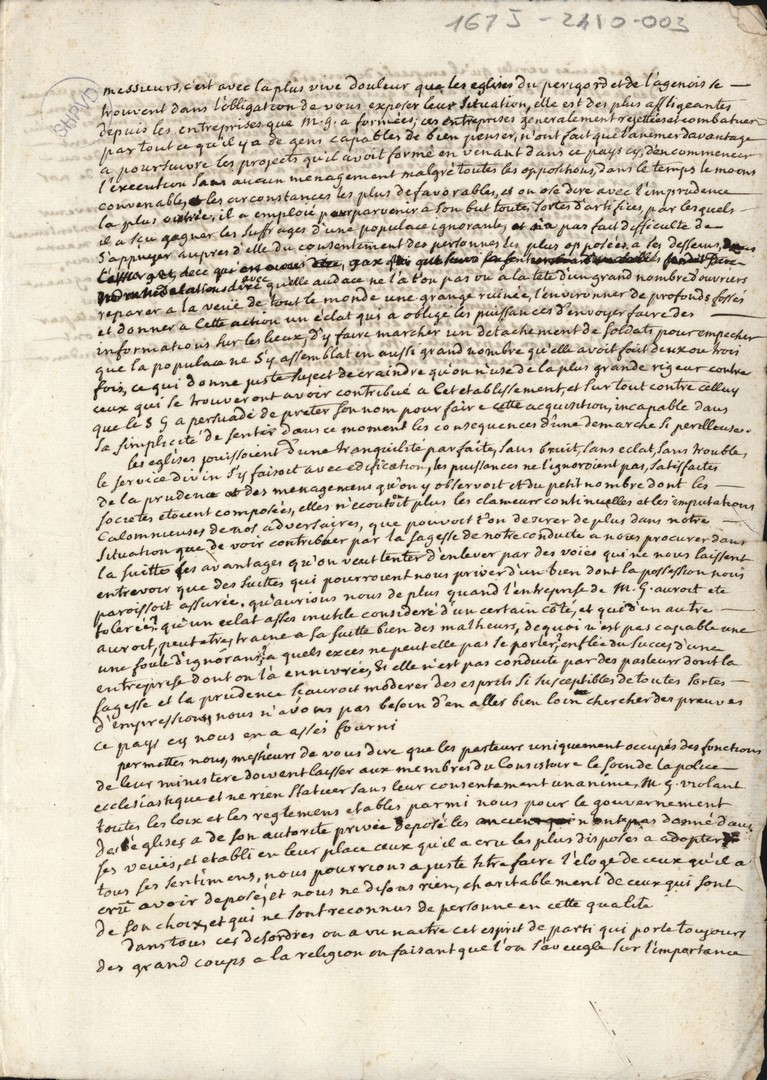 1675 - 2410-003
SHPVD
messieurs, c'est avec la plus vive douleur que les eglises du perigord et de l'agenois se
trouvent dans l'obligation de vous exposer leur situation, elle est des plus affligeantes
depuis les entreprises que M. G. a formées; ces entreprises generalement rejettées et combatues
par tout ce qu'il y a de gens capables de bien penser, n'ont fait que l'animer davantage
a poursuivre les projets qu'il avoit formé en venant dans ce pays cy, d'en commencer
l'execution sans aucun menagement malgré toutes les oppositions, dans le temps le moins
convenable, et les circonstances les plus defavorables, et on ose dire avec l'imprudence
la plus outrée, il a emploié pour parvenir a son but toutes sortes d'artifices, par lesquels
il a sçu gagner les suffrages d'une populace ignorante, et n'a pas fait difficulté de
s'appuyer aupres d'elle du consentement des personnes les plus opposées a ses desseins,
avec quelle audace ne l'a t'on pas vu a la tete d'un grand nombre d'ouvriers
reparer a la veüe de tout le monde une grange ruinée, l'environner de profonds fossés
et donner a cette action un eclat qui a obligé les puissances d'envoyer faire des
informations sur les lieux, d'y faire marcher un detachement de soldats pour empecher
que la populace ne s'y assemblat en aussi grand nombre qu'elle avoit fait deux ou trois
fois, ce qui donne juste suject de craindre qu'on n'use de la plus grande rigeur contre
ceux qui se trouveront avoir contribué a cet etablissement, et sur tout contre celluy
que le S G a persuadé de preter son nom pour faire cette acquisition, incapable dans
sa simplicité de sentir dans ce moment les consequences d'une demarche si perilleuse.
les eglises jouissoient d'une tranquilité parfaite, sans bruit, sans eclat, sans troubles
le service divin s'y faisoit avec edification, les puissances ne l'ignoroient pas, satisfaites
de la prudence et des menagemens qu'on y observoit et du petit nombre dont les
societes etoient composées, elles n'ecoutoit plus les clameurs continuelles et les imputations
calomnieuses de nos adversaires, que pouvoit t'on desirer de plus dans notre
situation que de voir contribuer par la sagesse de notre conduite a nous procurer dans
la suitte les avantages qu'on veut tenter d'enlever par des voies qui ne nous laissent
entrevoir que des suittes qui pourroient nous priver d'un bien dont la possession nous
paroissoit assurée. qu'aurions nous de plus quand l'entreprise de M. G. auroit eté
tolerée? qu'un eclat asses inutile consideré d'un certain côté, et que d'un autre
auroit, peut etre, traine a sa suitte bien des malheurs, de quoi n'est pas capable une
une foule d'ignorans, a quels exces ne peut elle pas se porter, enflée du succes d'une
entreprise dont on l'a ennivrée, si elle n'est pas conduite par des pasteurs dont la
sagesse et la prudence sçauroit moderer des esprits si susceptibles de toutes sortes
d'impressions, nous n'avons pas besoin d'en aller bien loin chercher des preuves
ce pays cy nous en a asses fourni
permettes nous, messieurs de vous dire que les pasteurs uniquement occupés des fonctions
de leur ministere doivent laisser aux membres du Consistoire le soin de la police
ecclesiastique et ne rien statuer sans leur consentement unanime, M. G. violant
toutes les loix et les reglemens etablis parmi nous pour le gouvernement
des eglises a de son autorité privée deposé les anciens qui n'ont pas donné dans
ses veües, et etabli en leur place ceux qu'il a cru les plus disposes a adopter
tous ses sentimens, nous pourrions a juste titre faire l'eloge de ceux qu'il a
crû avoir deposé, et nous ne disons rien, charitablement de ceux qui sont
de son choix, et qui ne sont reconnus de personne en cette qualité
dans tous ces desordres on a vu naitre cet esprit de parti qui porte toujours
des grand coups a la religion en faisant que l'on s'aveugle sur l'importance